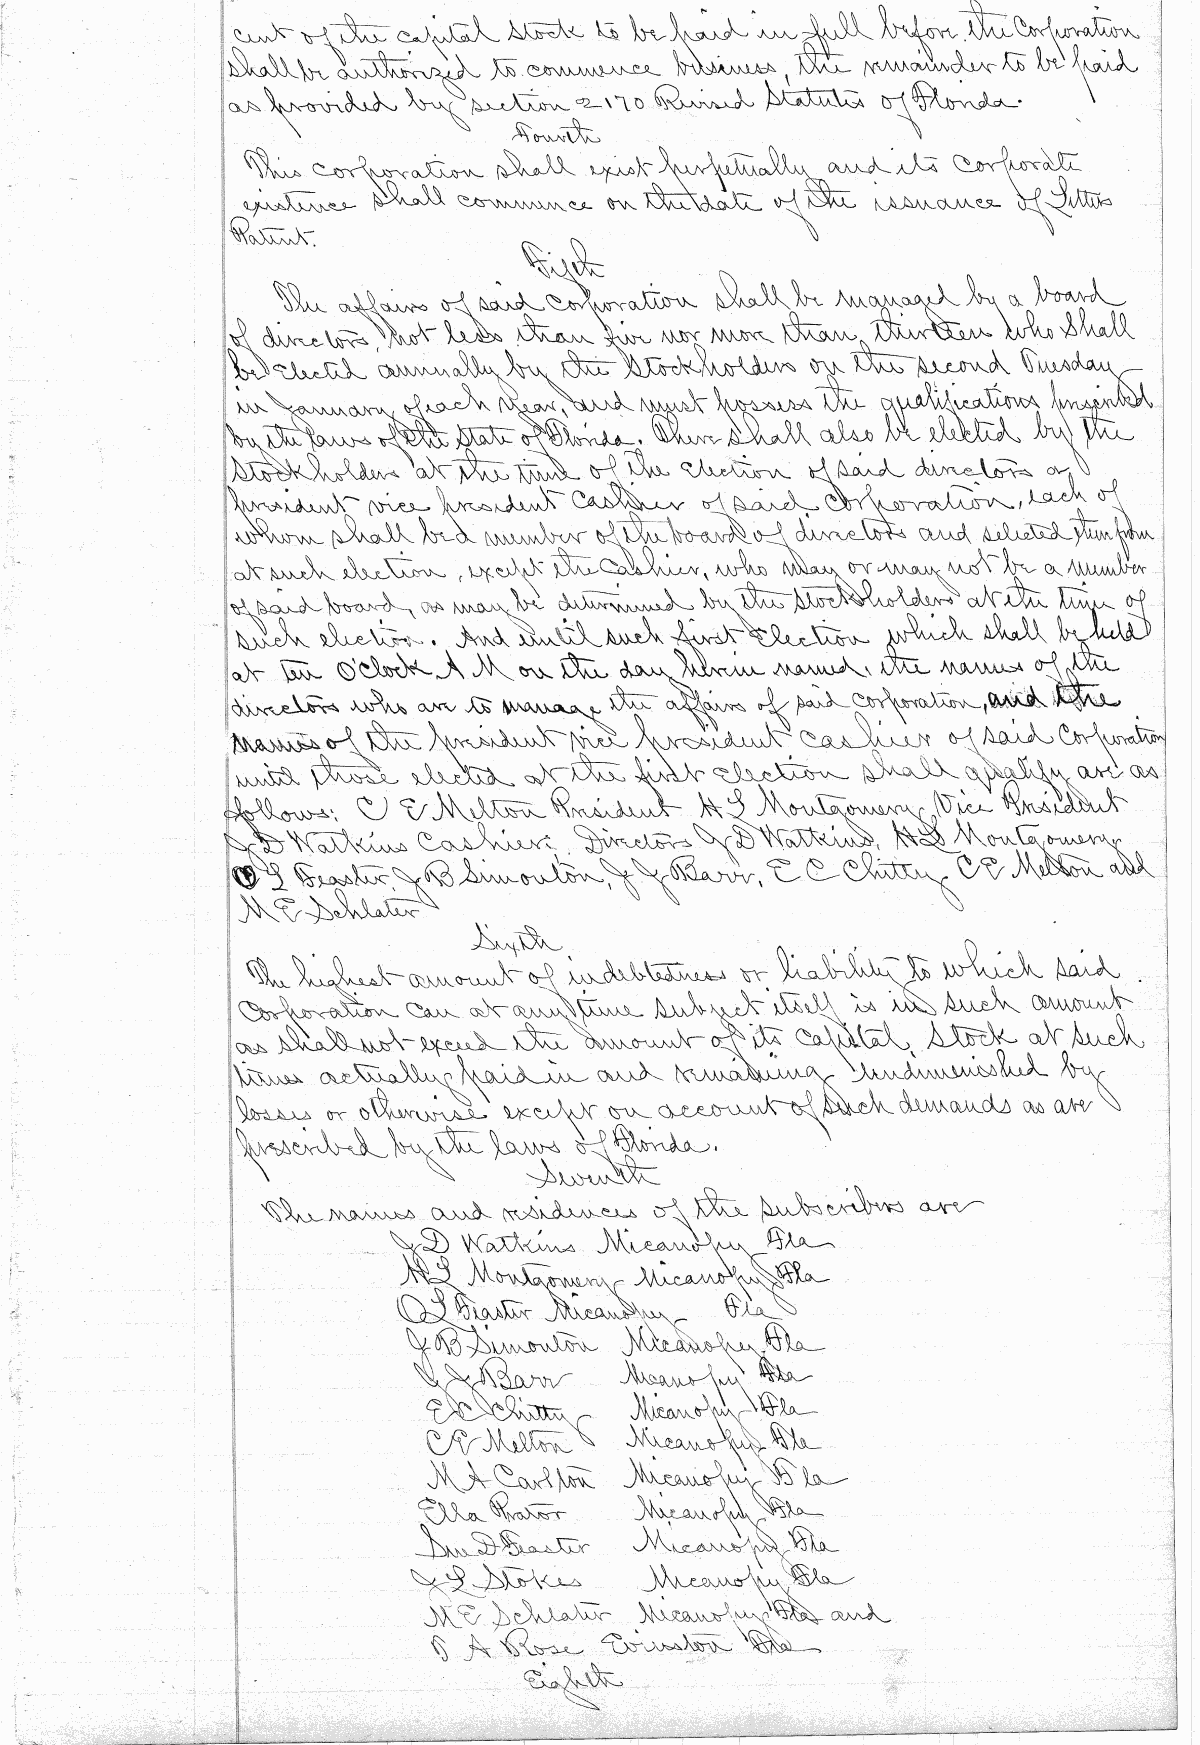 cent of the capital stock to be paid in full before the Corporation
shall be authorized to commence business, the remainder to be paid
as provided by section 2170 Revised Statutes of Florida.
Fourth
This corporation shall exist perpetually and its corporate
existence shall commence on the date of the issuance of Letters
Patent.
Fifth
The affairs of said corporation shall be managed by a board
of directors, not less than five nor more than thirteen who shall
be elected annually by the stockholders on the second Tuesday
in January of each year, and must possess the qualifications prescribed
by the laws of the State of Florida. There shall also be elected by the
stockholders at the time of the election of said directors a
president vice president cashier of said corporation, each of
whom shall be a member of the board of directors and selected therefrom
at such election, except the Cashier, who may or may not be a member
of said board, as may be determined by the stockholders at the time of
such election. And until such first election which shall be held
at ten O'clock A M on the day herein named, the names of the
directors who are to manage the affairs of said corporation, and the
names of the president vice president cashier of said Corporation
until those elected at the first election shall qualify are as
follows: C E Melton President H L Montgomery Vice President
J D Watkins Cashier: Directors J D Watkins, H L Montgomery
O L Feaster, J B Simonton, J J Barr, E C Chitty C E Melton and
M E Schlater
Sixth
The highest amount of indebtedness or liability to which said
Corporation can at any time subject itself is in such amount
as shall not exceed the amount of its capital stock at such
times actually paid in and remaining undiminished by
losses or otherwise except on account of such demands as are
prescribed by the laws of Florida.
Seventh
The names and residences of the subscribers are
J D Watkins Micanopy Fla
H L Montgomery Micanopy Fla
O L Feaster Micanopy Fla
J B Simonton Micanopy Fla
J J Barr Micanopy Fla
E C Chitty Micanopy Fla
C E Melton Micanopy Fla
M A Carlton Micanopy Fla
Ella Prator Micanopy Fla
Sue D Feaster Micanopy Fla
J L Stokes Micanopy Fla
M E Schlater Micanopy Fla and
P A Rose Evinston Fla
Eighth